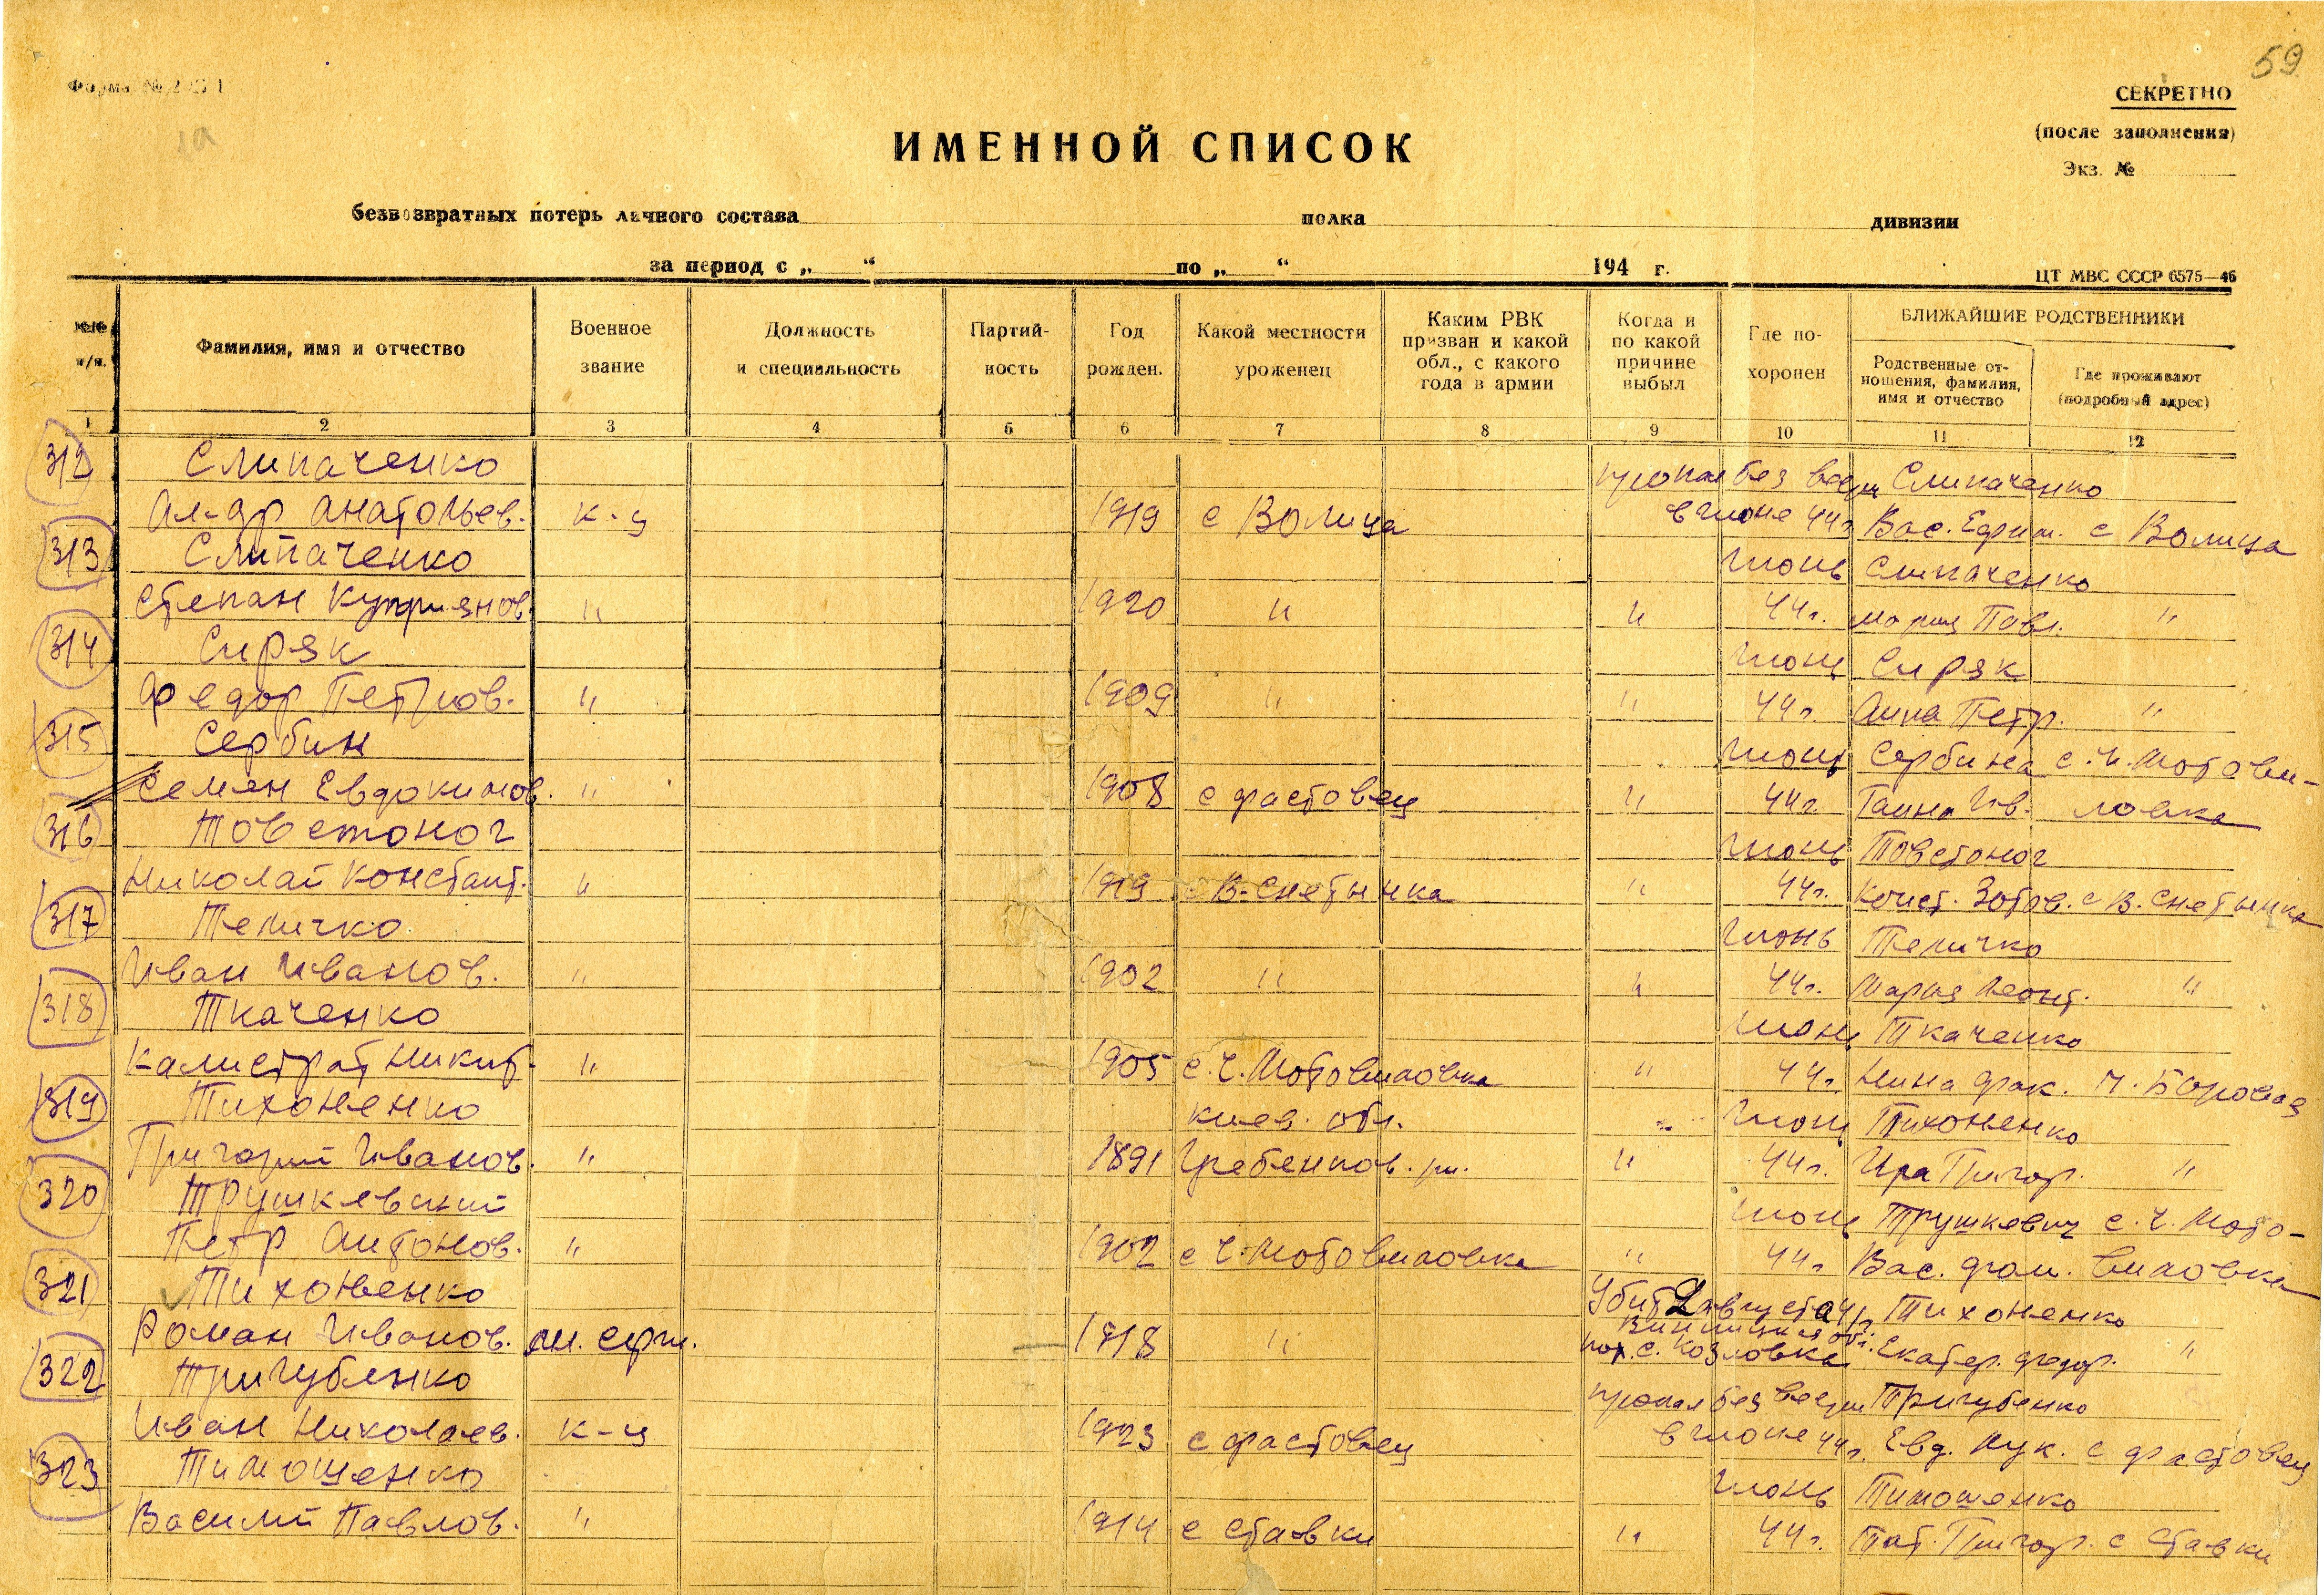 59
Форма № 2
1а
СЕКРЕТНО
(после заполнения)
Экз. №
ИМЕННОЙ СПИСОК
безвозвратных потерь личного состава полка дивизии
за период с „ “ по „ “ 194 г.
ЦТ МВС СССР 6575—46
№№ п/п.
Фамилия, имя и отчество
Военное звание
Должность и специальность
Партий-ность
Год рожден.
Какой местности уроженец
Каким РВК призван и какой обл., с какого года в армии
Когда и по какой причине выбыл
Где по-хоронен
БЛИЖАЙШИЕ РОДСТВЕННИКИ
Родственные от-ношения, фамилия, имя и отчество
Где проживают (подробный адрес)
1 2 3 4 5 6 7 8 9 10 11 12
312 Слипаченко пропал без вести Слипаченко
Ал-др Анатольев. к-ц 1919 с Волица в июне 44г. Вас. Ефим. с Волица
313 Слипаченко июнь Слипаченко
Степан Куприянов. " 1920 " " 44г. Мария Павл. "
314 Сиряк июнь Сиряк
Федор Петров. " 1909 " " 44г. Анна Петр. "
315 Сербин июнь Сербина с. Ч. Мотови-
Семен Евдокимов. " 1908 с Фастовец " 44г. Ганна Ив. ловка
316 Товстоног июнь Товстоног
Николай Констант. " 1919 с В-Снетынка " 44г. Конст. Зотов. с В. Снетынка
317 Теличко июнь Теличко
Иван Иванов. " 1902 " " 44г. Мария Леонт. "
318 Ткаченко июнь Ткаченко
Калистрат Никит. " 1905 с. Ч. Мотовиловка " 44г. Нина Фак. М. Боровая
319 Тихоненко киев. обл. июнь Тихоненко
Григорий Иванов. " 1891 Гребенков. рн. " 44г. Ира Григор. "
320 Трушкевский июнь Трушкевич с. Ч. Мото-
Петр Антонов. " 1902 с Ч. Мотовиловка " 44г. Вас. Фом. виловка
321 Тихоненко Убит 2 августа 44г. Тихоненко
Винницкая обл.
Роман Иванов. мл. серж. 1918 " пох. с. Козловка Екатер. Федор. "
322 Тригубенко пропал без вести Тригубенко
Иван Николаев. к-ц 1923 с Фастовец в июне 44г. Евд. Лук. с Фастовец
323 Тимошенко июнь Тимошенко
Василий Павлов. " 1914 с Ставки " 44г. Тат. Григор. с Ставки